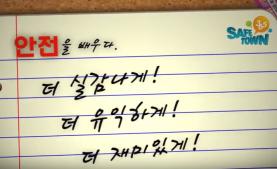 안전을 배우다.
SAFE
TOWN
더 실감나게!
더 유익하게!
더 재미있게!